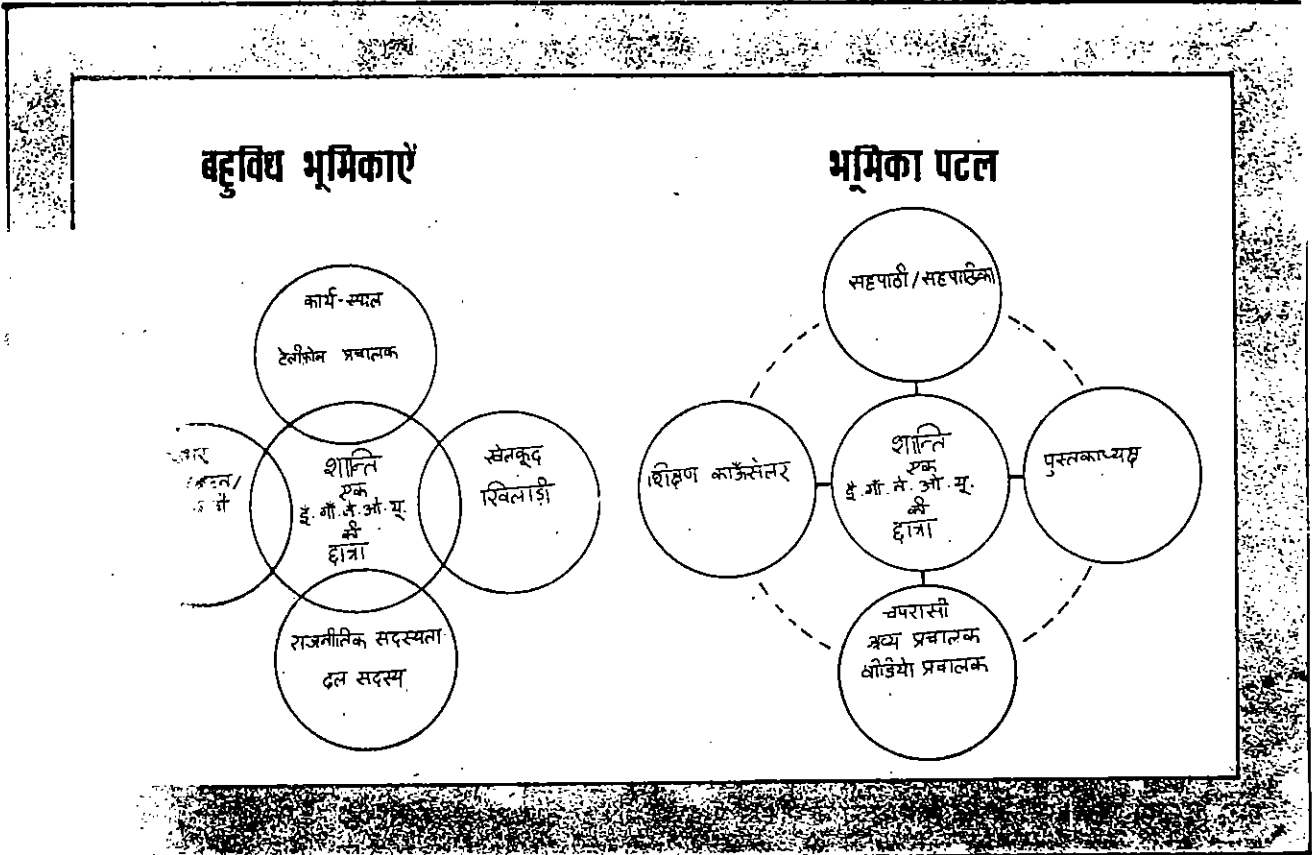 बहुविध भूमिकाऐं
कार्य-स्थल
टेलीफ़ोन प्रचालक
शान्ति
एक
इ.गाँ.ने.ओ.यू.
की
छात्रा
खेलकूद
खिलाड़ी
राजनीतिक सदस्यता
दल सदस्य
भूमिका पटल
सहपाठी/सहपाठिका
शिक्षण काऊँसेलर
शान्ति
एक
इ.गाँ.ने.ओ.यू.
की
छात्रा
पुस्तकाध्यक्ष
चपरासी
श्रव्य प्रचालक
वीडियो प्रचालक